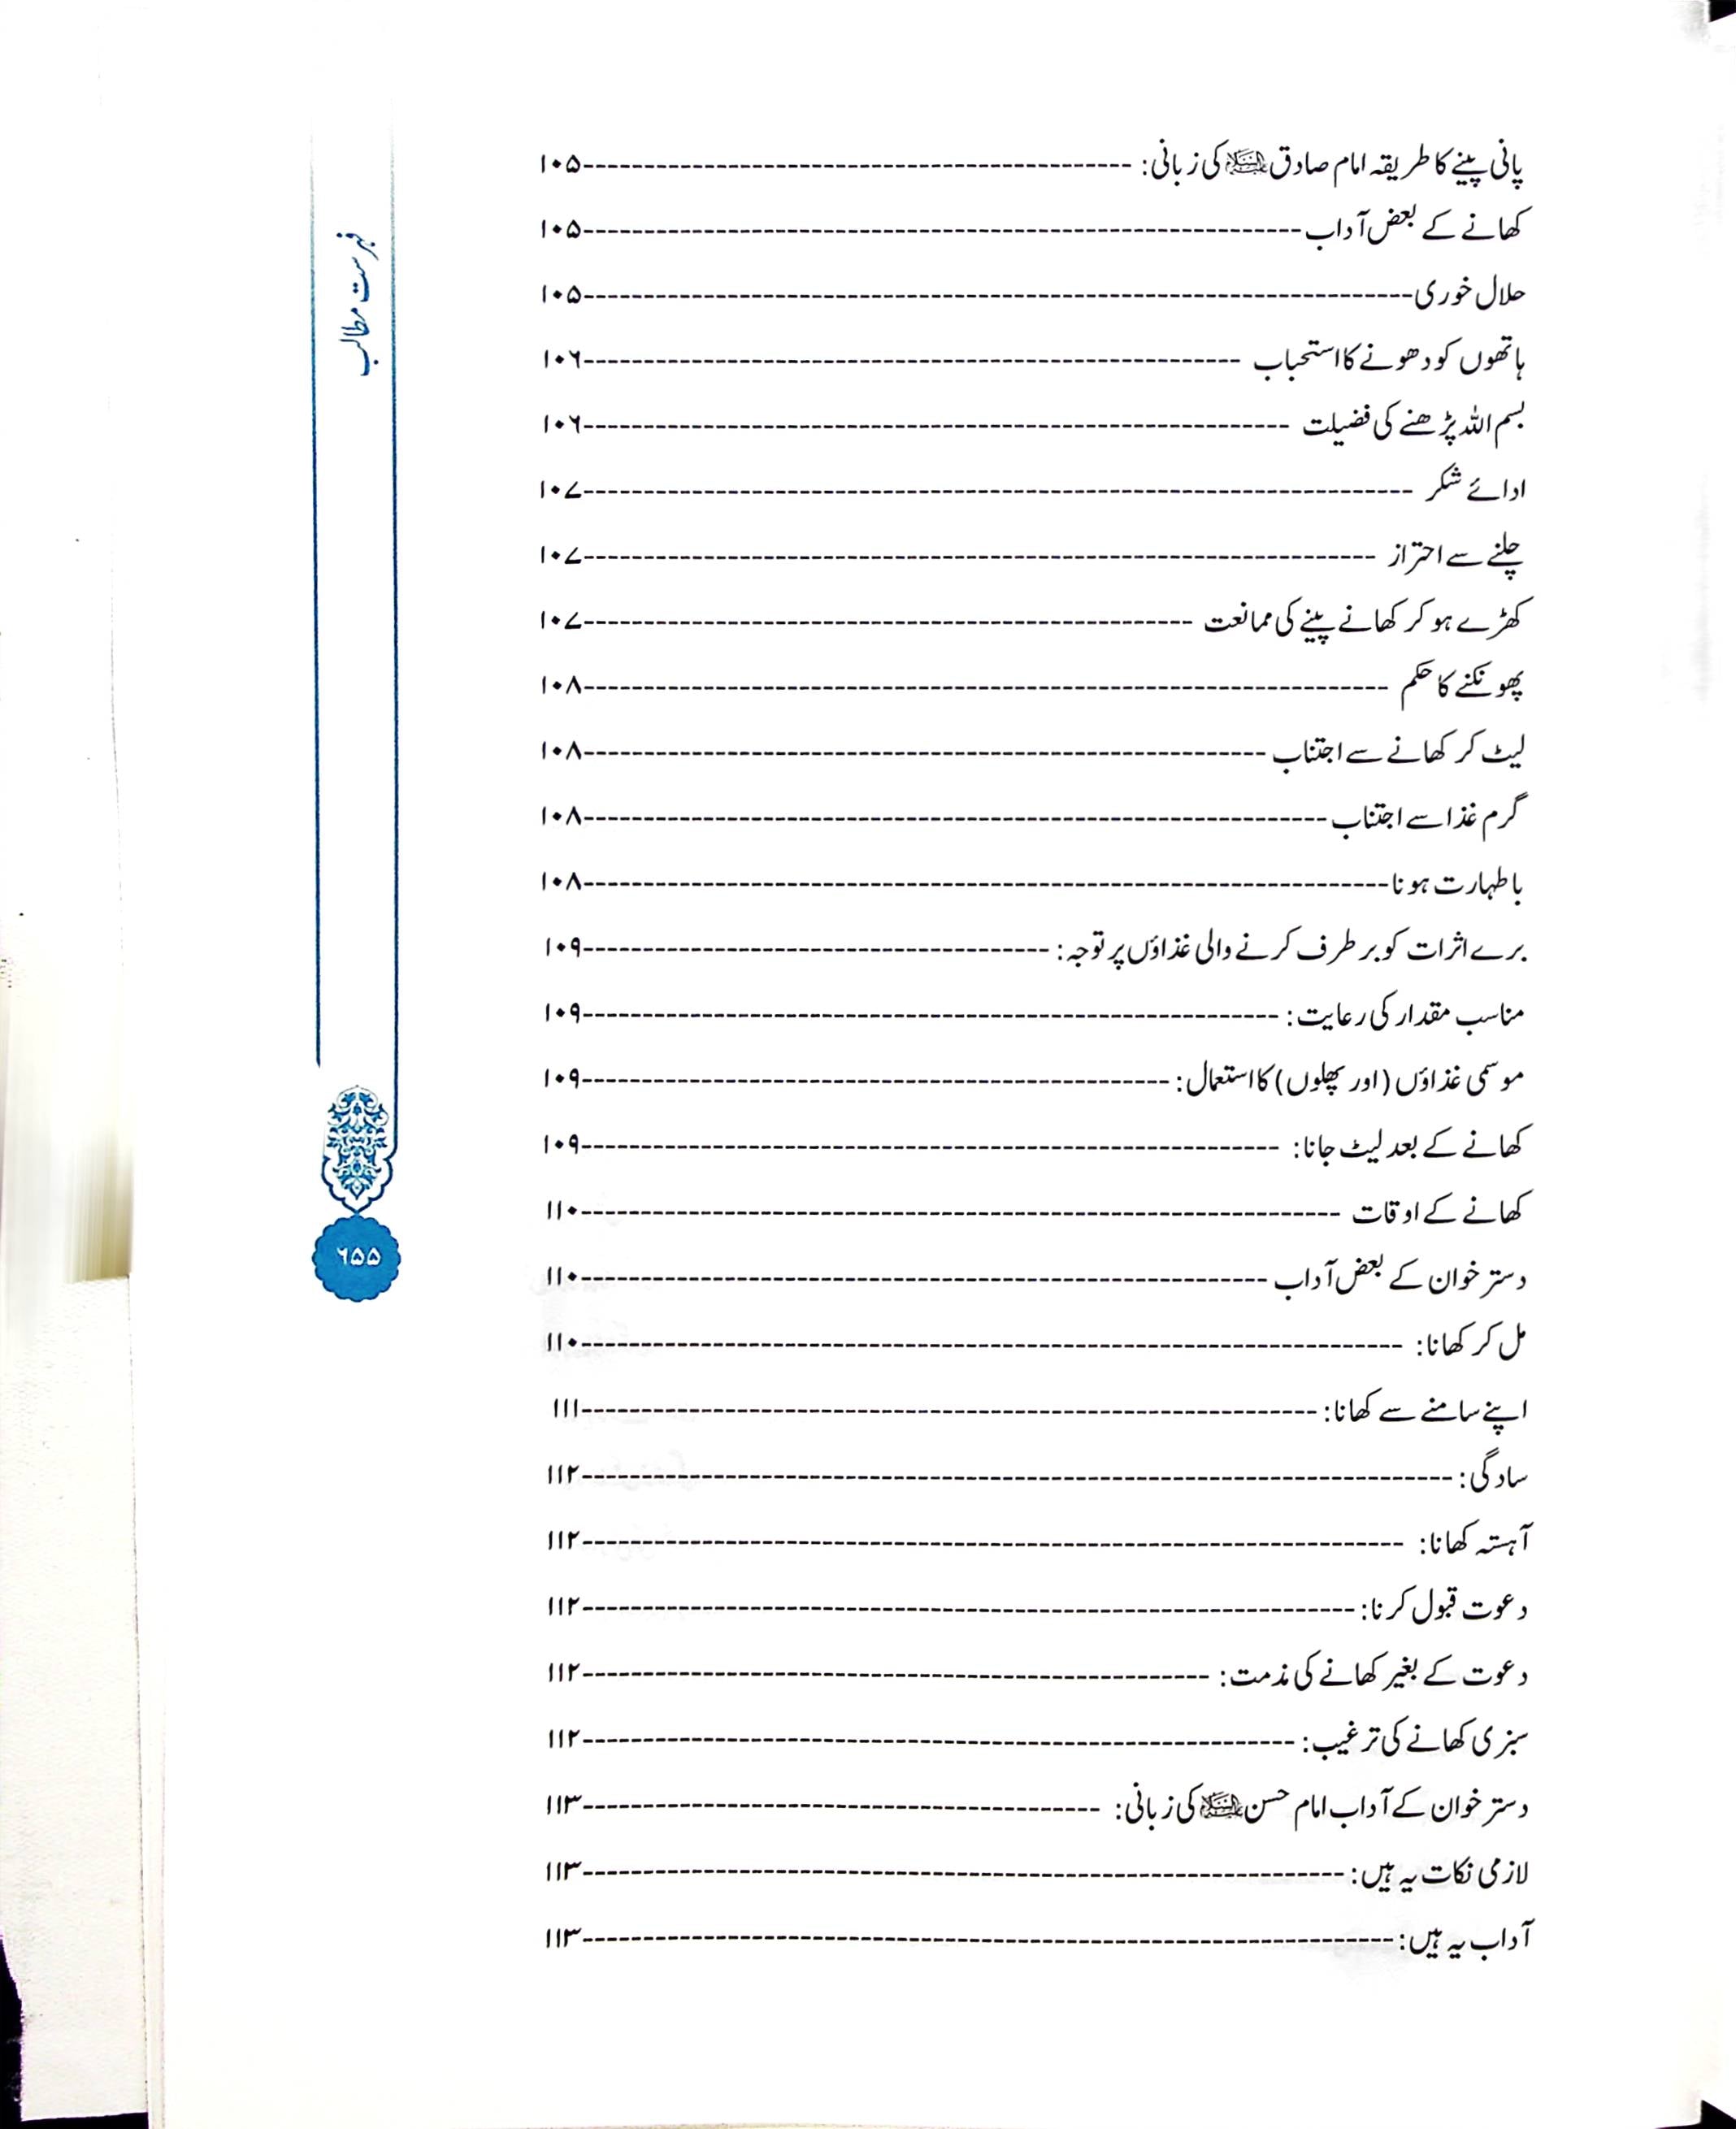 پانی پینے کا طریقہ امام صادق علیہ السلام کی زبانی: ----------۱۰۵
کھانے کے بعض آداب ----------۱۰۵
حلال خوری ----------۱۰۵
ہاتھوں کو دھونے کا استحباب ----------۱۰۶
بسم اللہ پڑھنے کی فضیلت ----------۱۰۶
ادائے شکر ----------۱۰۷
چلنے سے احتراز ----------۱۰۷
کھڑے ہو کر کھانے پینے کی ممانعت ----------۱۰۷
پھونکنے کا حکم ----------۱۰۸
لیٹ کر کھانے سے اجتناب ----------۱۰۸
گرم غذا سے اجتناب ----------۱۰۸
با طہارت ہونا ----------۱۰۸
برے اثرات کو بر طرف کرنے والی غذاؤں پر توجہ: ----------۱۰۹
مناسب مقدار کی رعایت: ----------۱۰۹
موسمی غذاؤں (اور پھلوں) کا استعمال: ----------۱۰۹
کھانے کے بعد لیٹ جانا: ----------۱۰۹
کھانے کے اوقات ----------۱۱۰
دستر خوان کے بعض آداب ----------۱۱۰
مل کر کھانا: ----------۱۱۰
اپنے سامنے سے کھانا: ----------۱۱۱
سادگی: ----------۱۱۲
آہستہ کھانا: ----------۱۱۲
دعوت قبول کرنا: ----------۱۱۲
دعوت کے بغیر کھانے کی مذمت: ----------۱۱۲
سبزی کھانے کی ترغیب: ----------۱۱۲
دستر خوان کے آداب امام حسن علیہ السلام کی زبانی: ----------۱۱۳
لازمی نکات یہ ہیں: ----------۱۱۳
آداب یہ ہیں: ----------۱۱۳
فہرست مطالب
۶۵۵